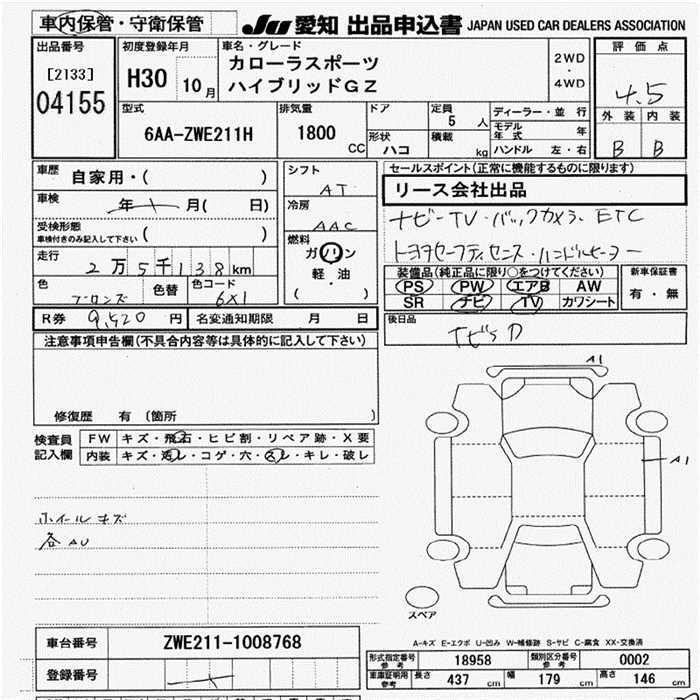 車内保管・守衛保管
JU 愛知 出品申込書 JAPAN USED CAR DEALERS ASSOCIATION
出品番号
[2133]
04155
初度登録年月
H30 10月
車名・グレード
カローラスポーツ
ハイブリッドGZ
2WD
・
4WD
評価点
4.5
外装 内装
B B
型式
6AA-ZWE211H
排気量
1800 CC
ドア
形状 ハコ
定員 5 人
積載 kg
ディーラー・並行
モデル年式 年
ハンドル 左・右
車歴 自家用・( )
車検 年 月( 日)
受検形態
車検付きのみ記入して下さい ( )
走行
2万5千138km
色 ブロンズ 色替
色コード 6X1
シフト
AT
冷房
AAC
燃料
ガソリン
軽・油
( )
セールスポイント(正常に機能するものに限ります)
リース会社出品
ナビーTV・バックカメラ ETC
トヨタセーフティセンス・ハンドルヒーター
装備品(純正品に限り○をつけてください)
PS PW エアB AW
SR ナビ TV カワシート
新車保証書
有・無
R券 9,520 円
名変通知期限 月 日
後日品
注意事項申告欄(不具合内容等は具体的に記入して下さい)
修復歴 有 (箇所 )
検査員記入欄
FW キズ・飛石・ヒビ割・リペア跡・X要
内装 キズ・汚レ・コゲ・穴・スレ・キレ・破レ
ホイールキズ
各AU
A1
A1
スペア
A-キズ E-エクボ U-凹み W-補修跡 S-サビ C-腐食 XX-交換済
車台番号 ZWE211-1008768
登録番号
形式指定番号 参考 18958
類別区分番号 参考 0002
車庫証明用参考 長さ 437 cm 幅 179 cm 高さ 146 cm